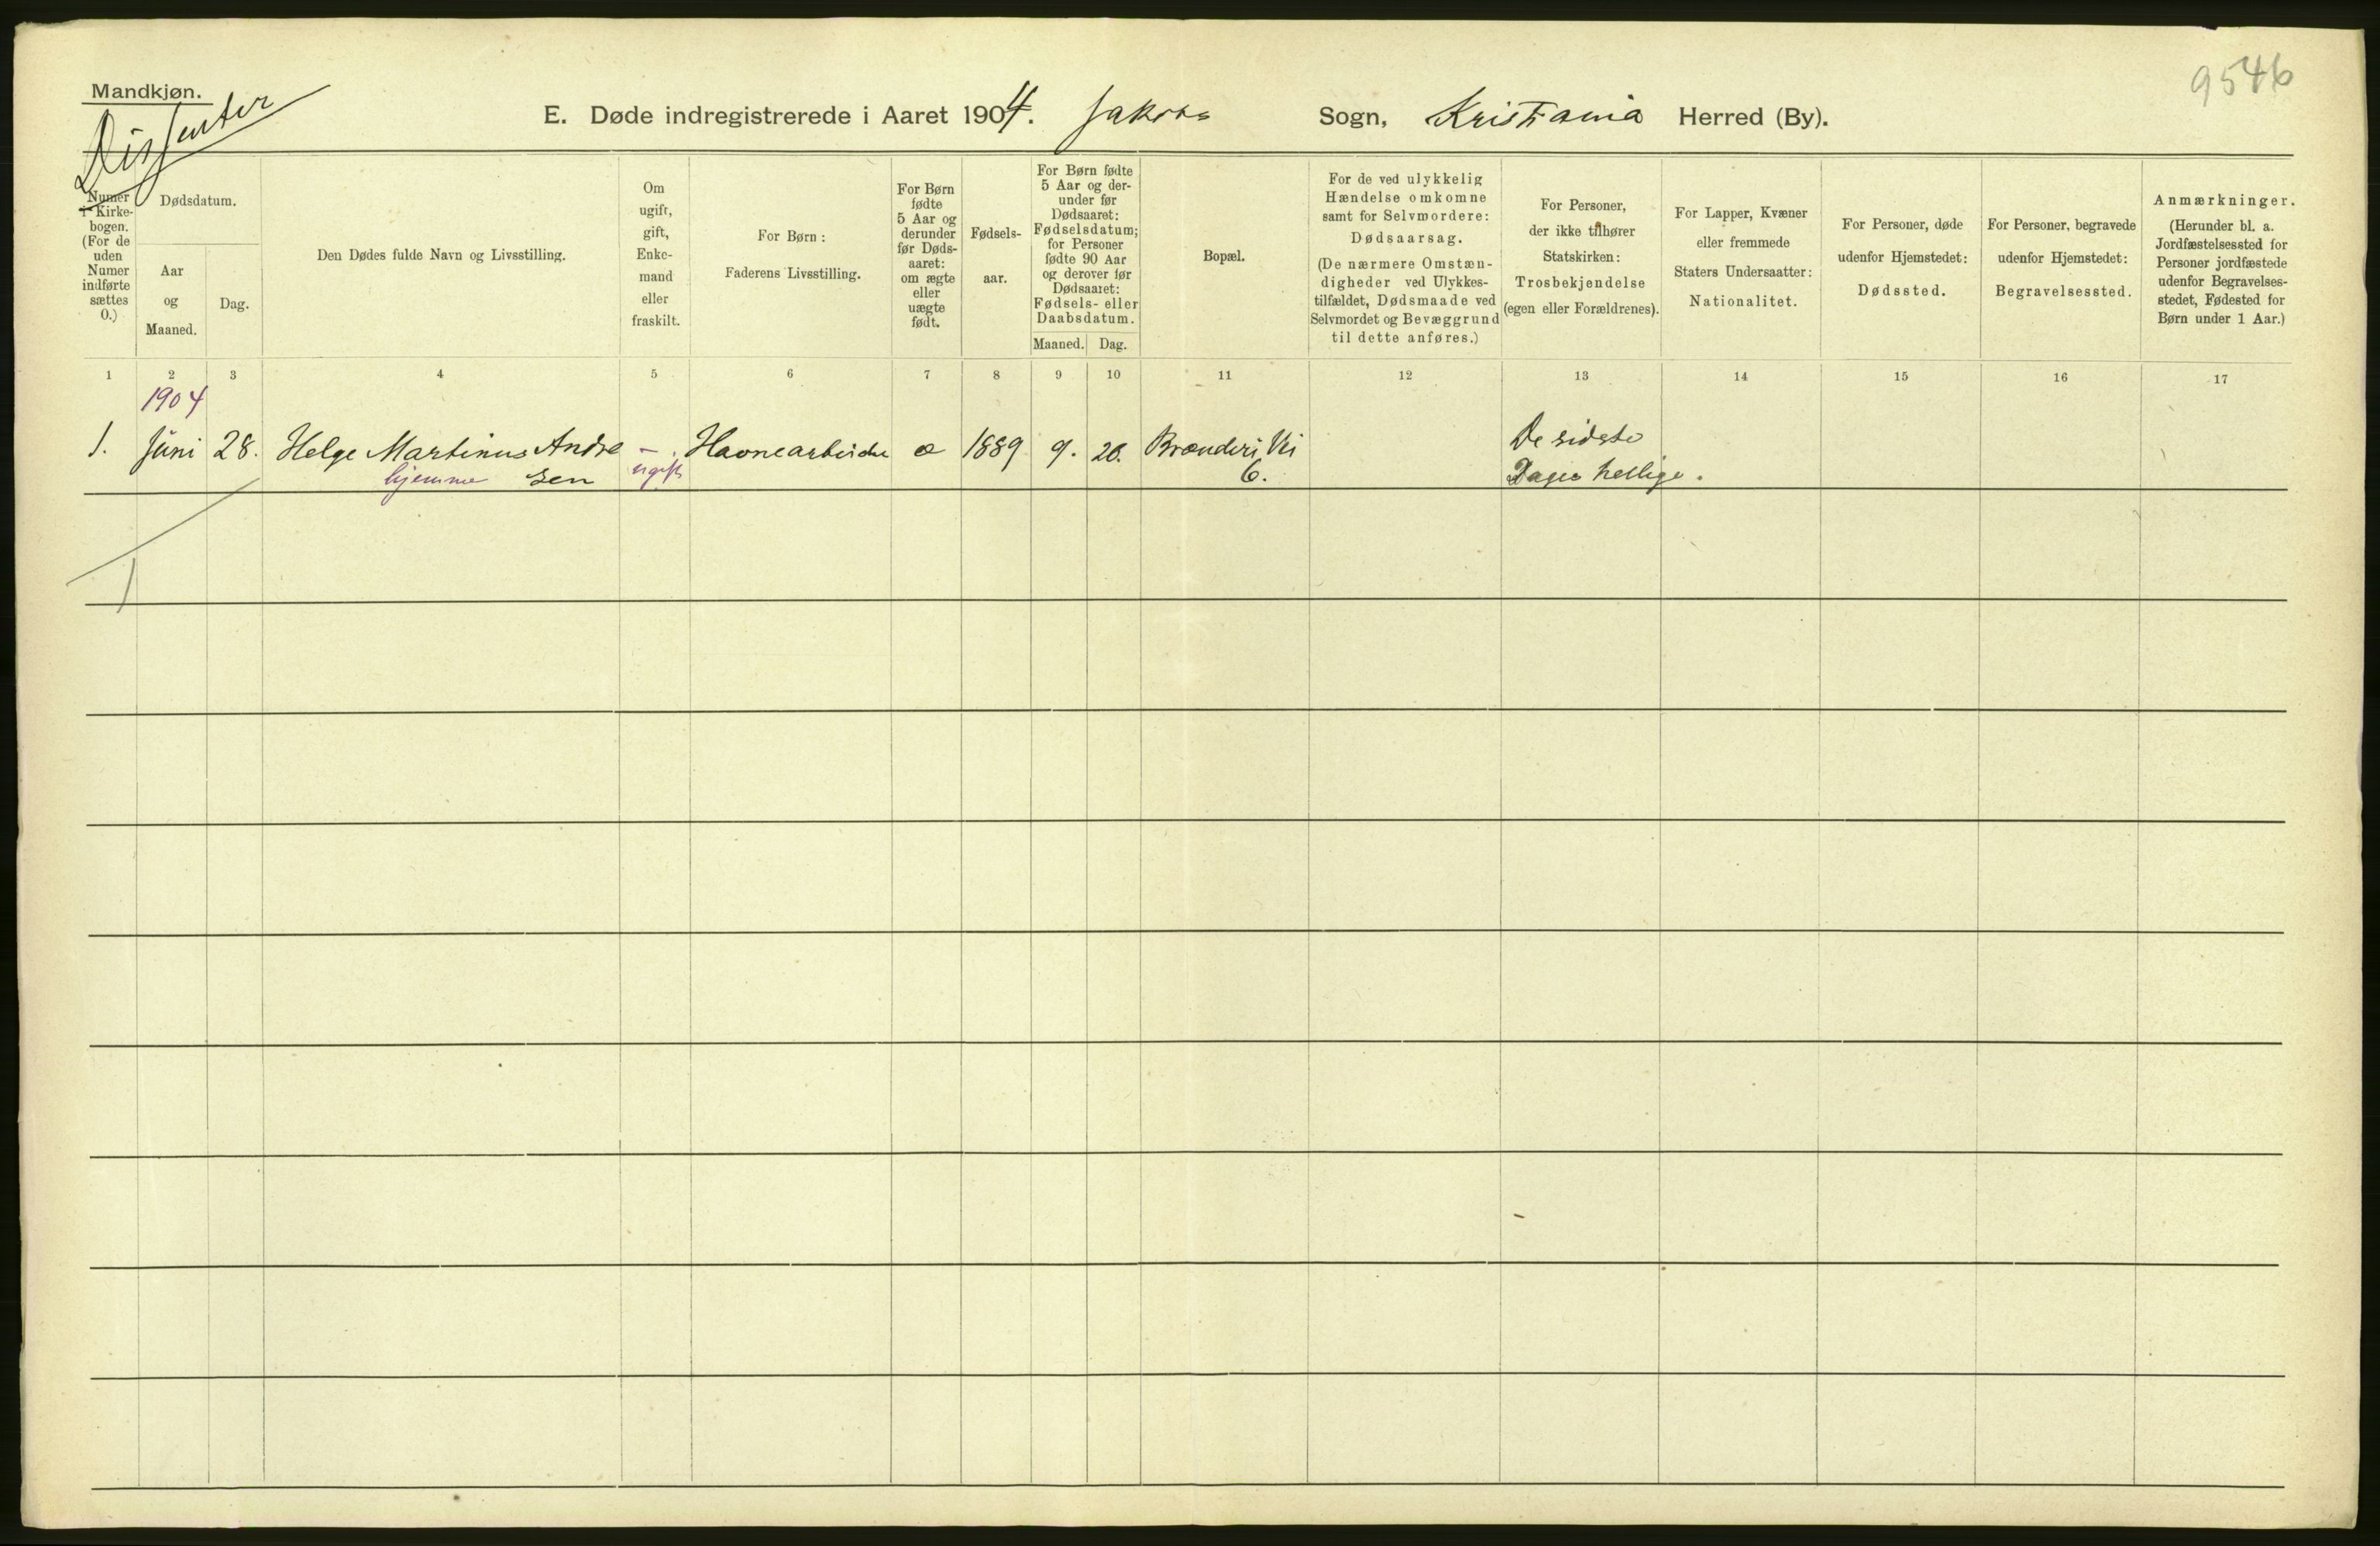 9546
Mandkjøn.
Dissenter
E. Døde indregistrerede i Aaret 1904. Jakobs Sogn, Kristiania Herred (By).
Numer i Kirkebogen. (For de uden Numer indførte sættes 0.)
Dødsdatum.
Aar og Maaned.
Dag.
Den Dødes fulde Navn og Livsstilling.
Om ugift, gift, Enkemand eller fraskilt.
For Børn: Faderens Livsstilling.
For Børn fødte 5 Aar og derunder før Dødsaaret: om ægte eller uægte født.
Fødselsaar.
For Børn fødte 5 Aar og derunder før Dødsaaret: Fødselsdatum; for Personer fødte 90 Aar og derover før Dødsaaret: Fødsels- eller Daabsdatum.
Maaned. Dag.
Bopæl.
For de ved ulykkelig Hændelse omkomne samt for Selvmordere: Dødsaarsag. (De nærmere Omstændigheder ved Ulykkestilfældet, Dødsmaade ved Selvmordet og Bevæggrund til dette anføres.)
For Personer, der ikke tilhører Statskirken: Trosbekjendelse (egen eller Forældrenes).
For Lapper, Kvæner eller fremmede Staters Undersaatter: Nationalitet.
For Personer, døde udenfor Hjemstedet: Dødssted.
For Personer, begravede udenfor Hjemstedet: Begravelsessted.
Anmærkninger. (Herunder bl. a. Jordfæstelsessted for Personer jordfæstede udenfor Begravelsesstedet, Fødested for Børn under 1 Aar.)
1 2 3 4 5 6 7 8 9 10 11 12 13 14 15 16 17
1904
1. Juni 28. Helge Martinus Andre – . Havnearbeider æ 1889 9. 20. Brænderi Vei De sidste
hjemme sen ugift 6. Dages hellige.
1